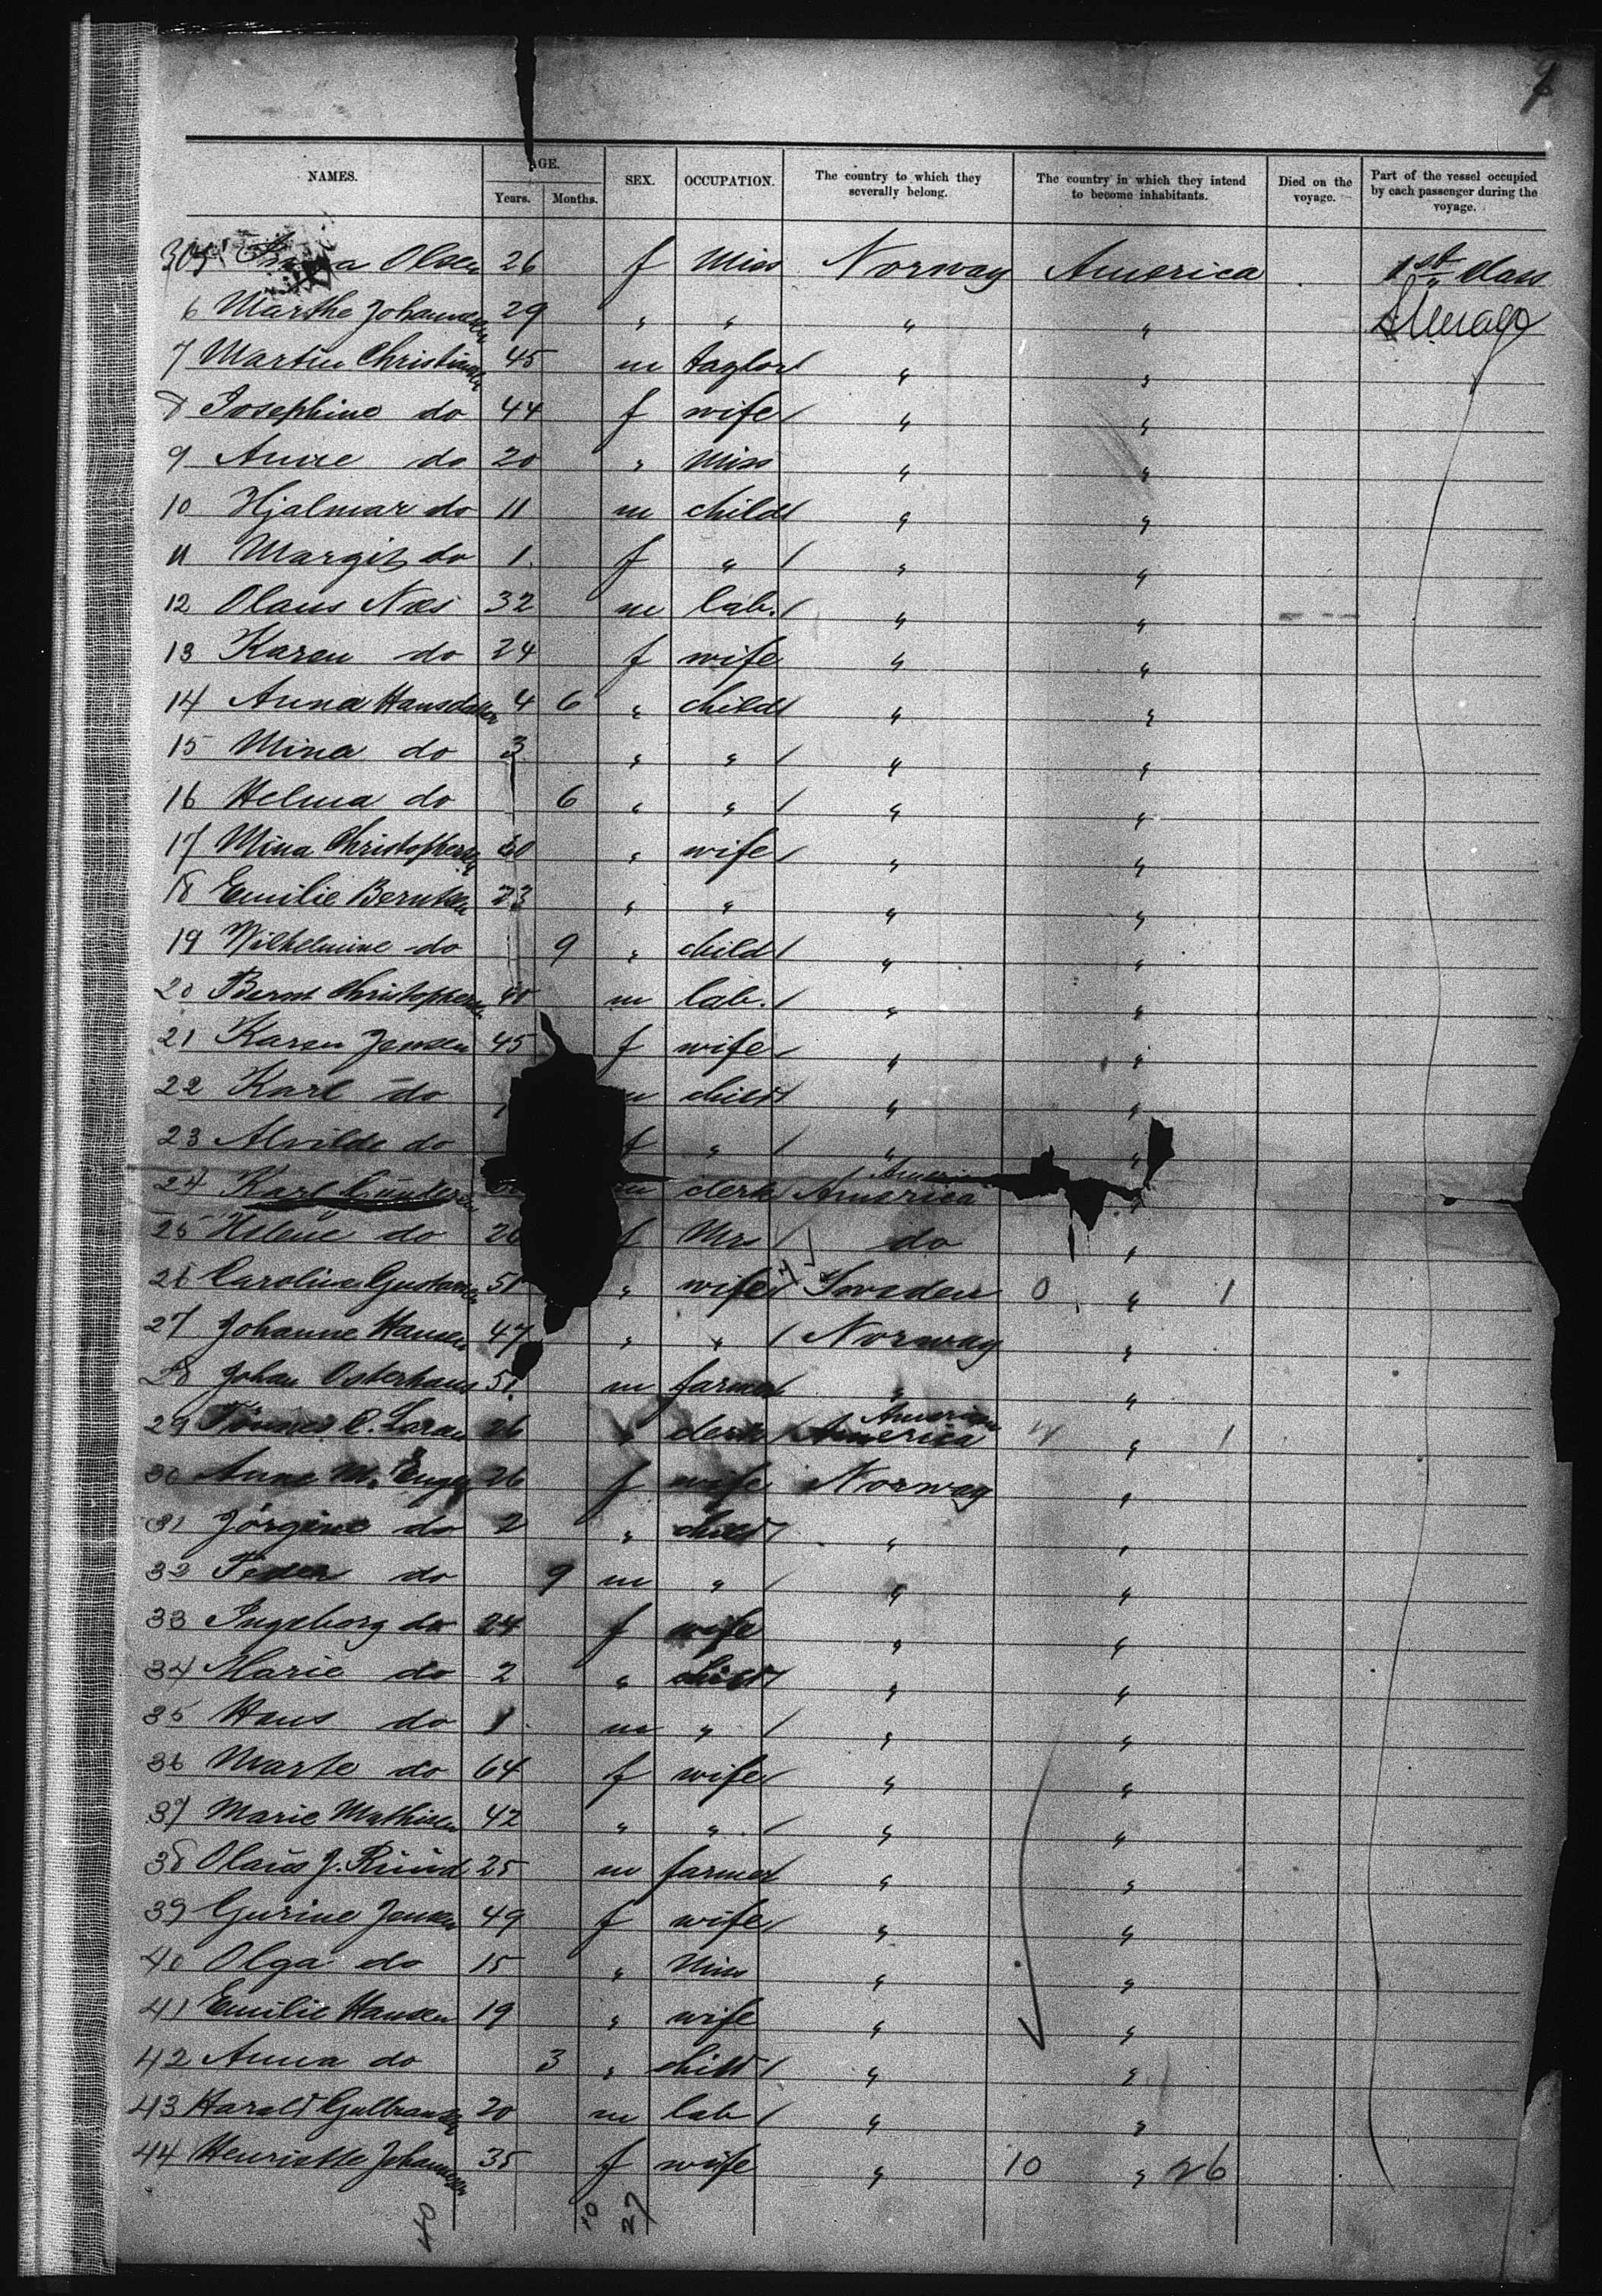 NAMES. AGE. Years. Months. SEX. OCCUPATION. The country to which they severally belong. The country in which they intend to become inhabitants. Died on the voyage. Part of the vessel occupied by each passenger during the voyage.
305 Olsen 26 f Miss Norway America 1st class
6 Marthe Johannesen 29 " " " " "
7 Martin Christiansen 45 m taylor " "
8 Josephine do 44 f wife " "
9 Anne do 20 " Miss " "
10 Hjalmar do 11 m child " "
11 Margit do 1 f " " "
12 Olaus Næs 32 m lab. " "
13 Karen do 24 f wife " "
14 Anna Hansdatter 4 6 " child " "
15 Mina do 3 " " " "
16 Helma do 6 " " " "
17 Mina Christophersen " wife " "
18 Emilie Berntsen 23 " " " "
19 Wilhelmine do 9 " child " "
20 Bernt Christophersen 40 m lab. " "
21 Karen Jensen 45 f wife " "
22 Karl do m child " "
23 Alvilde do f " " "
24 Karl m clerk America "
25 Helene do f Mrs do "
26 Caroline Gustavsen 51 " wife Sweden 0 " 1
27 Johanne Hansen 47 " " Norway "
28 Johan Osterhaus 51 m farmer " "
29 C. Larsen 26 clerk America " 1
30 Anne M. Engen 26 f wife Norway "
31 Jörgine do 2 " child " "
32 Peder do 9 m " " "
33 Ingeborg do 24 f wife " "
34 Marie do 2 " child " "
35 Hans do 1 m " " "
36 Marte do 64 f wife " "
37 Marie Mathisen 42 " " " "
38 Olaus J. Ruud 25 m farmer " "
39 Gurine Jensen 49 f wife " "
40 Olga do 15 " Miss " "
41 Emilie Hansen 19 " wife " "
42 Anna do 3 " child " "
43 Harald Gulbransen 20 m lab " "
44 Henriette Johannesen 35 f wife " 10 " 26
40 10 27